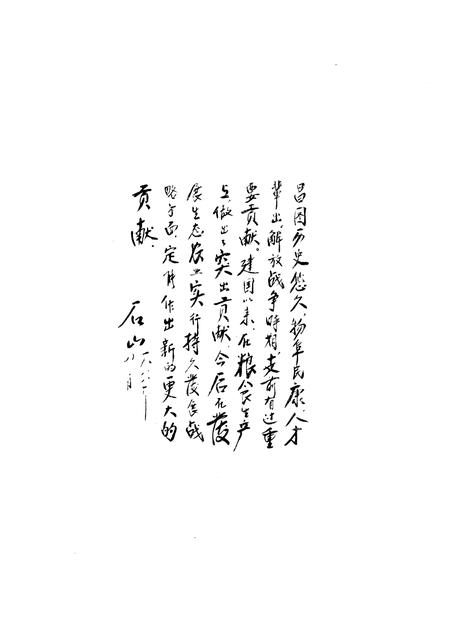 昌图历史悠久，物阜民康，人才
辈出。解放战争时期，支前有过重
要贡献。建国以来，在粮食生产
上，做出了突出贡献，今后在发
展生态农业实行持久发展战
略方面，定能作出新的更大的
贡献。
石山
八月